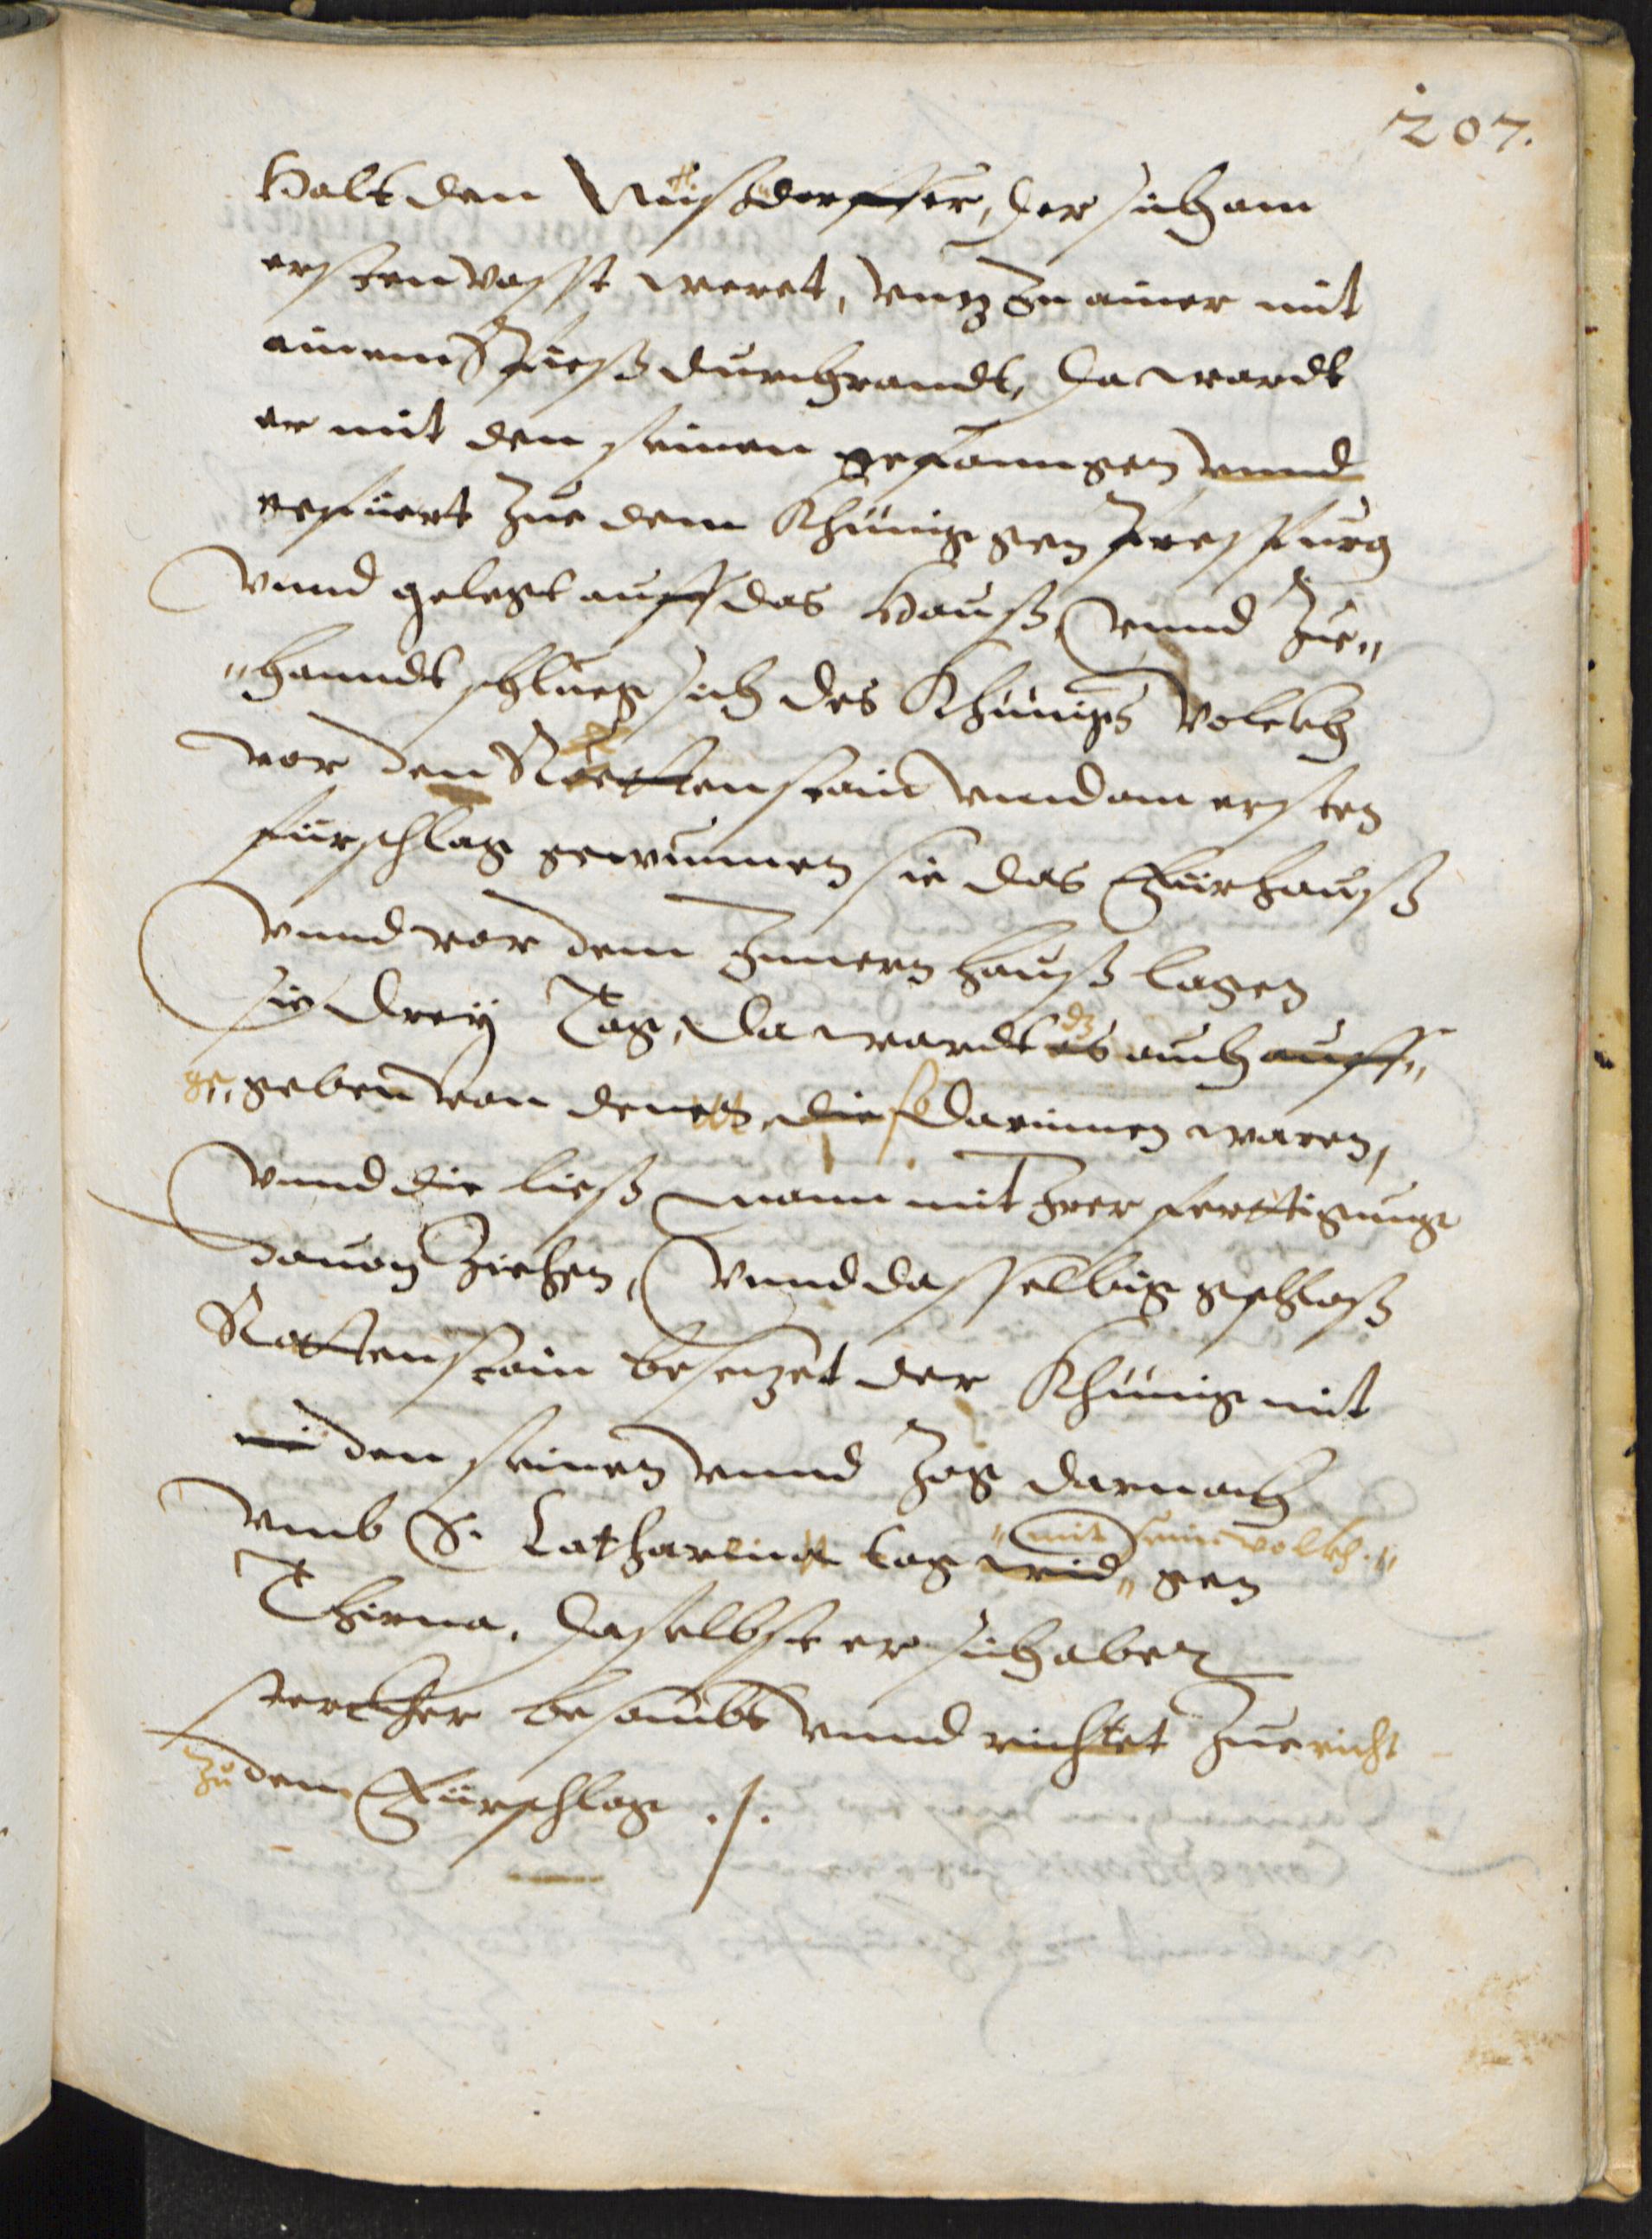 207.
Halt den Nusdorffer, der sich am
ersten vasst weret, vnntz In ainer mit
ainem Spieß durchrandt, Da wardt
er mit den seinen gefanngen vnnd
gefuert Zue dem Khünig gen Prespurg
vnnd gelegt auff das Hauß, vnnd Zue„
„hanndt schlueg sich des Khünigs Volckh
vor den Rottenstain vnnd am ersten
fürschlag gewunnen sie das Fürhauß
vnnd vor dem Innern hauß lagen
sie Drey Tag, Da wardt es dz auch auff„
ge„geben von denen, die so darinnen waren,
vnnd die ließ mann mit Irer ferttigung
dauon Ziehen, Vnnd dasselbig geschloß
Rottenstain besetzet der Khünig mit
den seinen vnnd Zog darnach
vmb S. Catharina tag „mit sein volckh.„ wid„ gen
Thirna, Daselbst er sich aber
stercker besambt vnnd richtet Zuericht
zu dem Fürschlag ./.